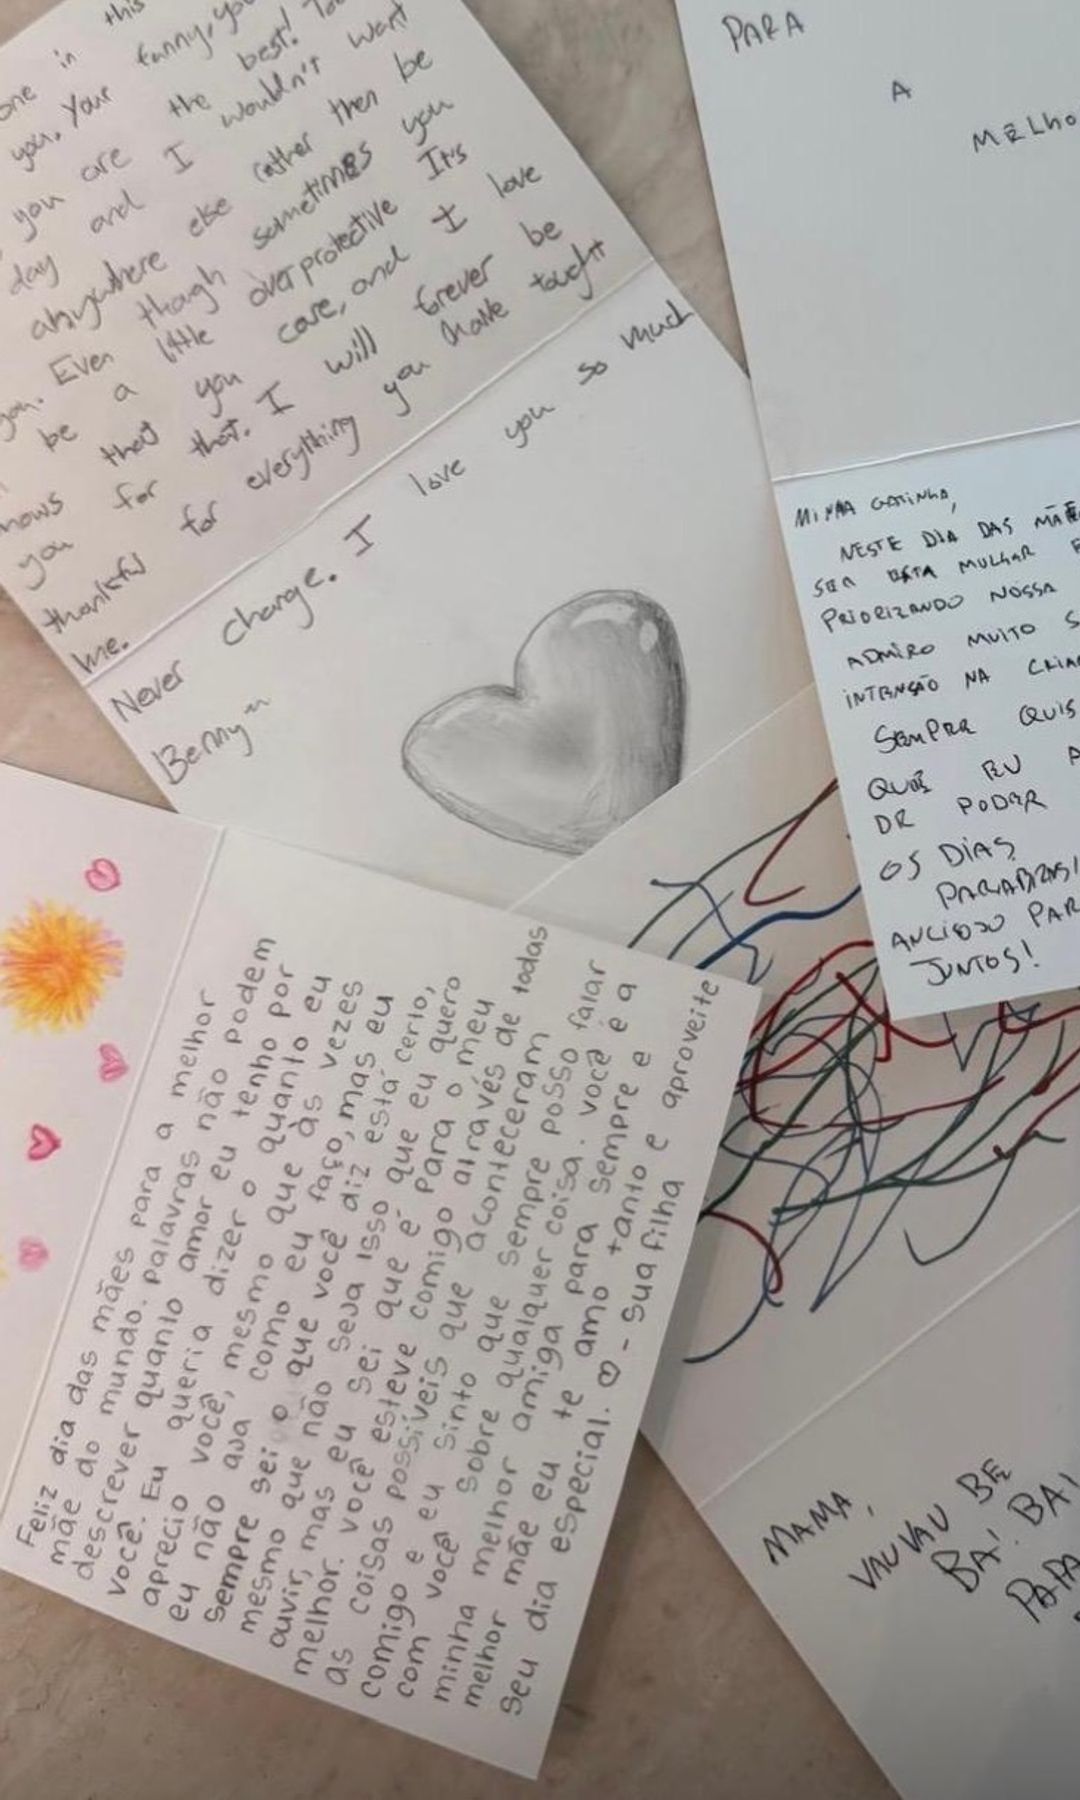 one in this
you. Your funny, you
you are the best!
day and I wouldn't want
anywhere else rather then be
you. Even though sometimes you
be a little overprotective It's
that you care, and I love
you for that. I will forever be
thankful for everything you have tought
me.
Never change. I love you so much
Benny~
PARA
A
MELHO
MINHA GATINHA,
NESTE DIA DAS MÃE
SER ESTA MULHAR
PRIORIZANDO NOSSA
ADMIRO MUITO S
INTENSÃO NA CRIA
SEMPRE QUIS
QUE EU A
DE PODER
OS DIAS
PARABENS!
ANCIOSO PAR
JUNTOS!
Feliz dia das mães para a melhor
mãe do mundo. palavras não podem
descrever quanto amor eu tenho por
você. Eu queria dizer o quanto eu
aprecio você, mesmo que às vezes
eu não aja como eu faço, mas eu
sempre sei o que você diz está certo,
mesmo que não seja isso que eu quero
ouvir, mas eu sei que é para o meu
melhor. você esteve comigo através de todas
as coisas possíveis que aconteceram
comigo e eu sinto que sempre posso falar
com você sobre qualquer coisa. você é a
minha melhor amiga para sempre e a
melhor mãe eu te amo tanto e aproveite
seu dia especial. ♡ - sua filha
MAMA,
VAUVAU BE
BA! BA!
PAPA